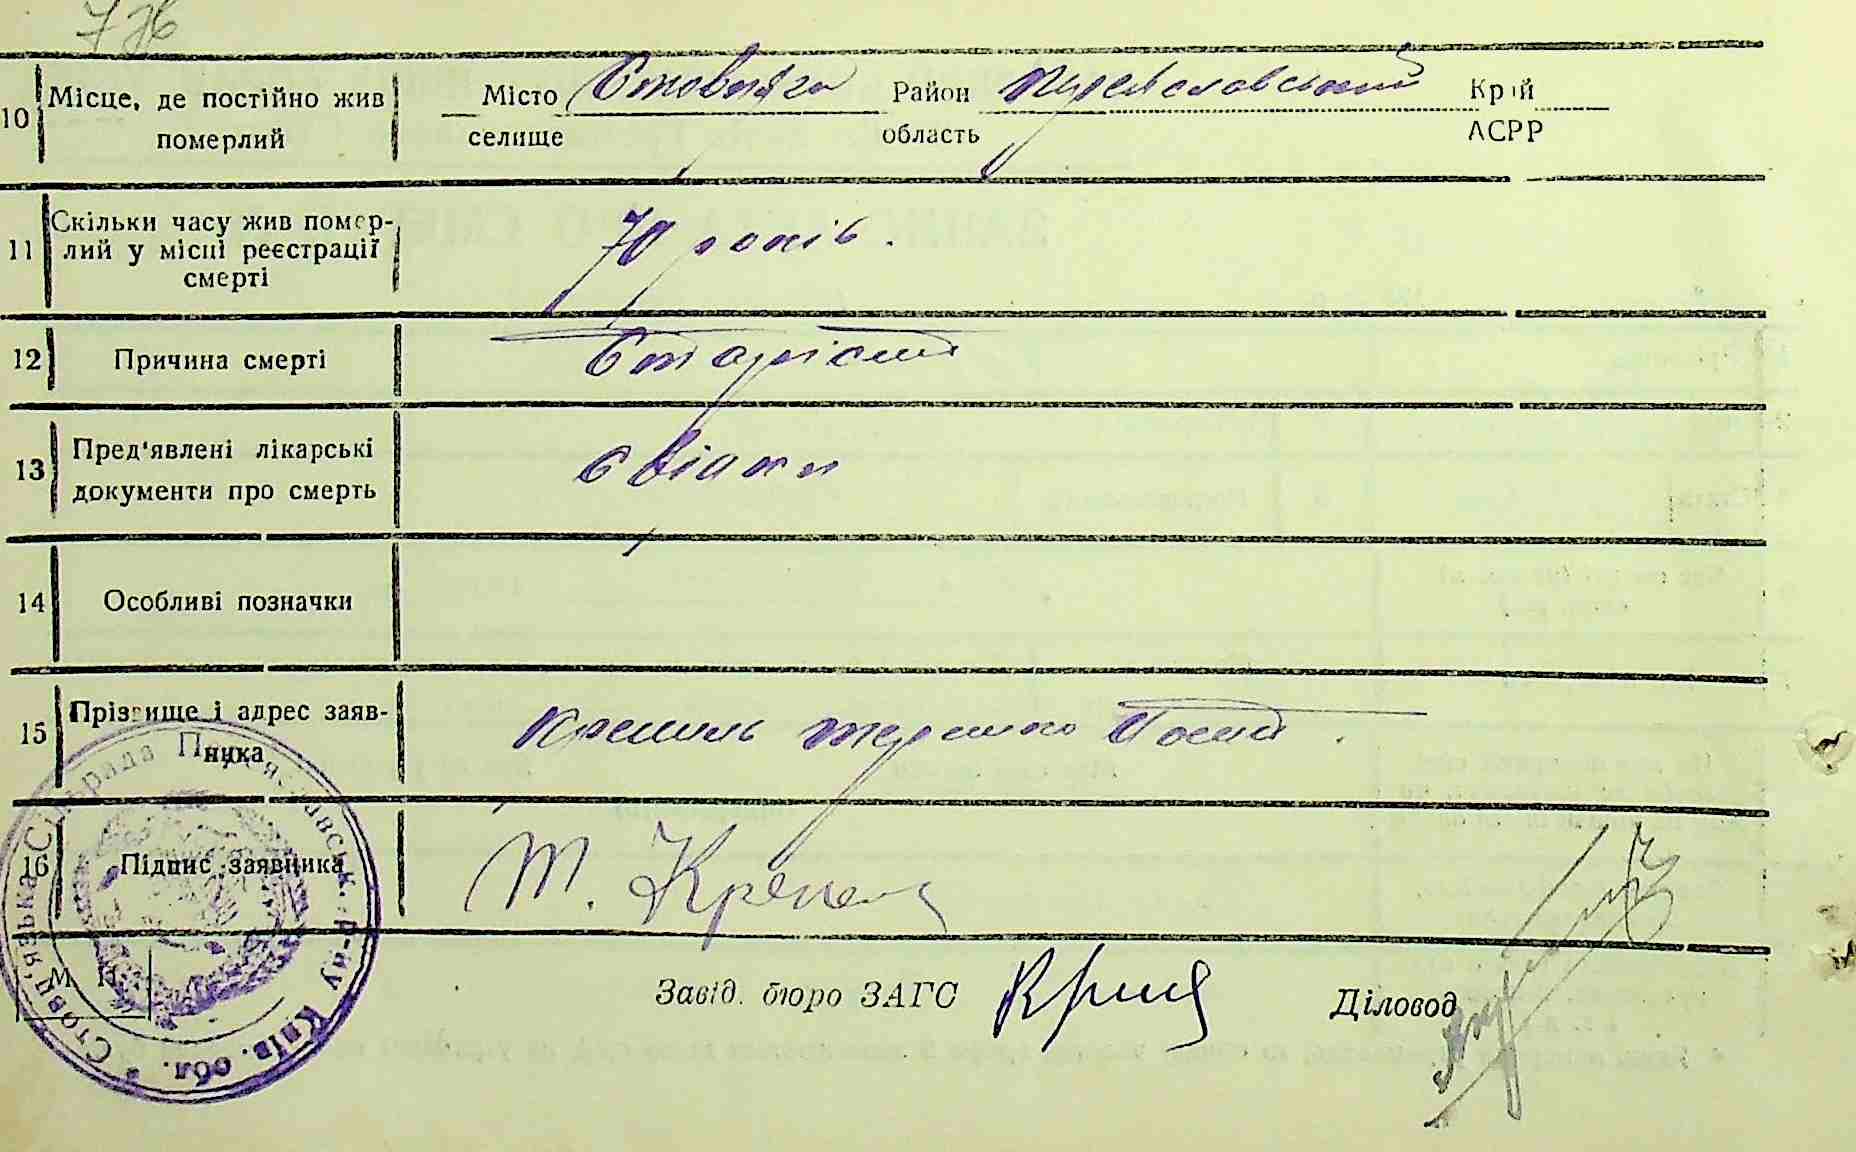 7 ж
10 Місце, де постійно жив померлий
Місто селище Стовпяга Район область Переяславський Край АСРР
11 Скільки часу жив померлий у місці реєстрації смерті
70 років.
12 Причина смерті
Старість
13 Пред'явлені лікарські документи про смерть
свідки
14 Особливі позначки
15 Прізвище і адрес заявника
16 Підпис заявника
Т.
М П
Завід. бюро ЗАГС
Діловод
Стовп'язька Сільрада Переяславськ. р-ну Київ. обл. *